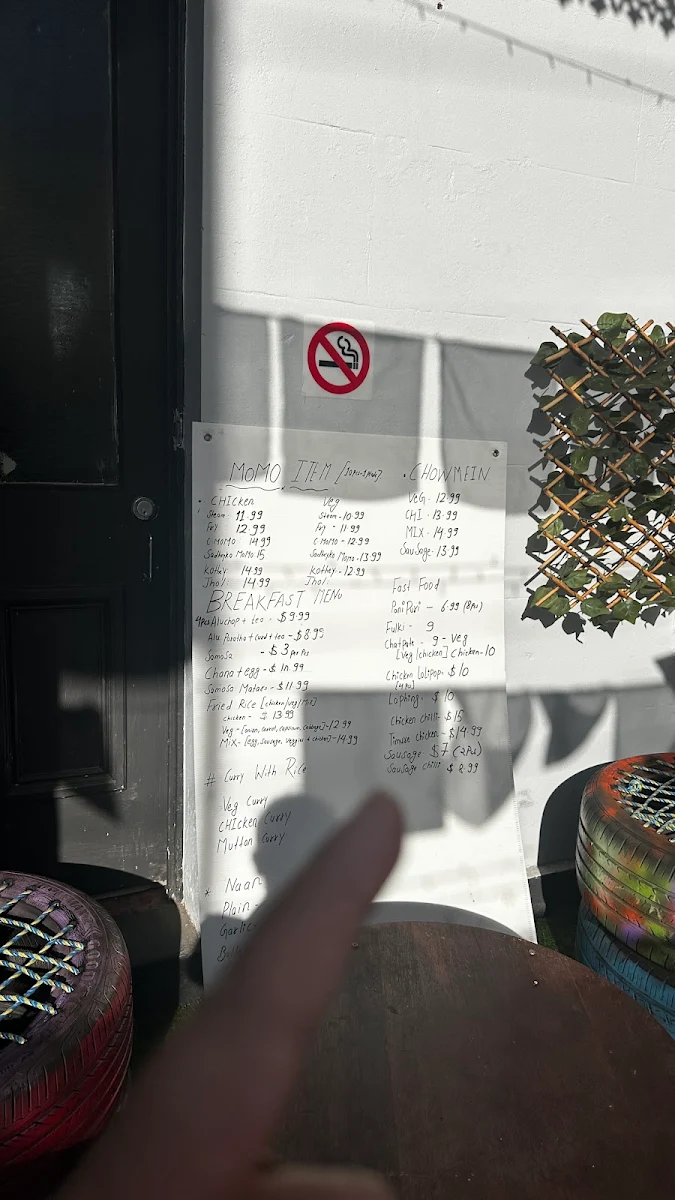 MOMO ITEM
CHICKEN
Steam 11.99
Fry 12.99
C MOMO 14.99
Sadheko MoMo 15
Kothey 14.99
Jhol: 14.99
Veg
Steam - 10.99
Fry - 11.99
C MoMo - 12.99
Sadheyko Momo - 13.99
Kothey - 12.99
Jhol:
• CHOWMEIN
VEG - 12.99
CHI - 13.99
MIX - 14.99
SauSage: 13.99
BREAKFAST MENU
4pcs Aluchop + tea - $9.99
Alu Parotha + Curd + tea - $8.99
Samosa - $3 per Pcs
Chana + egg - $
Samosa Matar - $11.99
Fried Rice [chicken/veg/Mix]
chicken - $ 13.99
Veg - [onion, carrot, capsicum, Cabbage] - 12.99
MiX - [egg, Sausage, Veggies & chicken] - 14.99
# Curry With Rice
Veg Curry
CHICKEN Curry
Mutton Curry
* Naan
Plain -
Garlic -
Fast Food
Pani Puri - 6.99 (8pcs)
Fulki - 9
Chatpate - 9 - Veg
[Veg/chicken] Chicken - 10
Chicken Lolipop: $10
Laphing: $10
Chicken chilli $15
Timure chicken - $14.99
Sausage $7 (2Pcs)
Sausage chilli $ 8.99